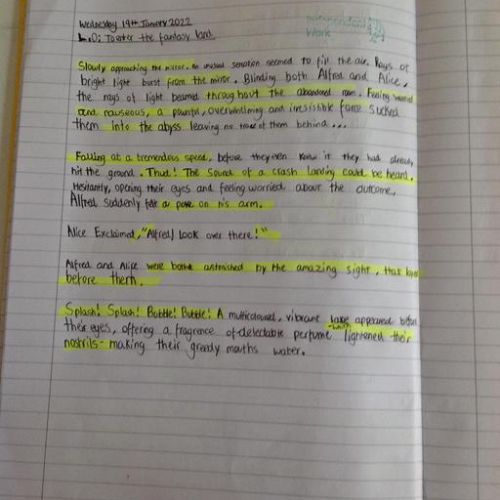 Wednesday 19th January 2022
L.O: To enter the fantasy land.
independent
Work
Slowly approaching the mirror. An unusual sensation seemed to fill the air. Rays of
bright light burst from the mirror. Blinding both Alfred and Alice,
the rays of light beamed throughout the abandoned room. Feeling
and nauseous, a powerful, overwhelming and irresistible force sucked
them into the abyss leaving no trace of them behind...
Falling at a tremendous speed, before they even knew it they had already
hit the ground. Thud! The sound of a crash landing could be heard.
Hesitantly, opening their eyes and feeling worried about the outcome,
Alfred suddenly felt a poke on his arm.
Alice Exclaimed, "Alfred, look over there!"
Alfred and Alice were both astonished by the amazing sight, that
before them.
Splash! Splash! Bubble! Bubble! A multicoloured, vibrant lake appeared before
their eyes, offering a fragrence of delectable perfume lightened their
nostrils- making their greedy mouths water.